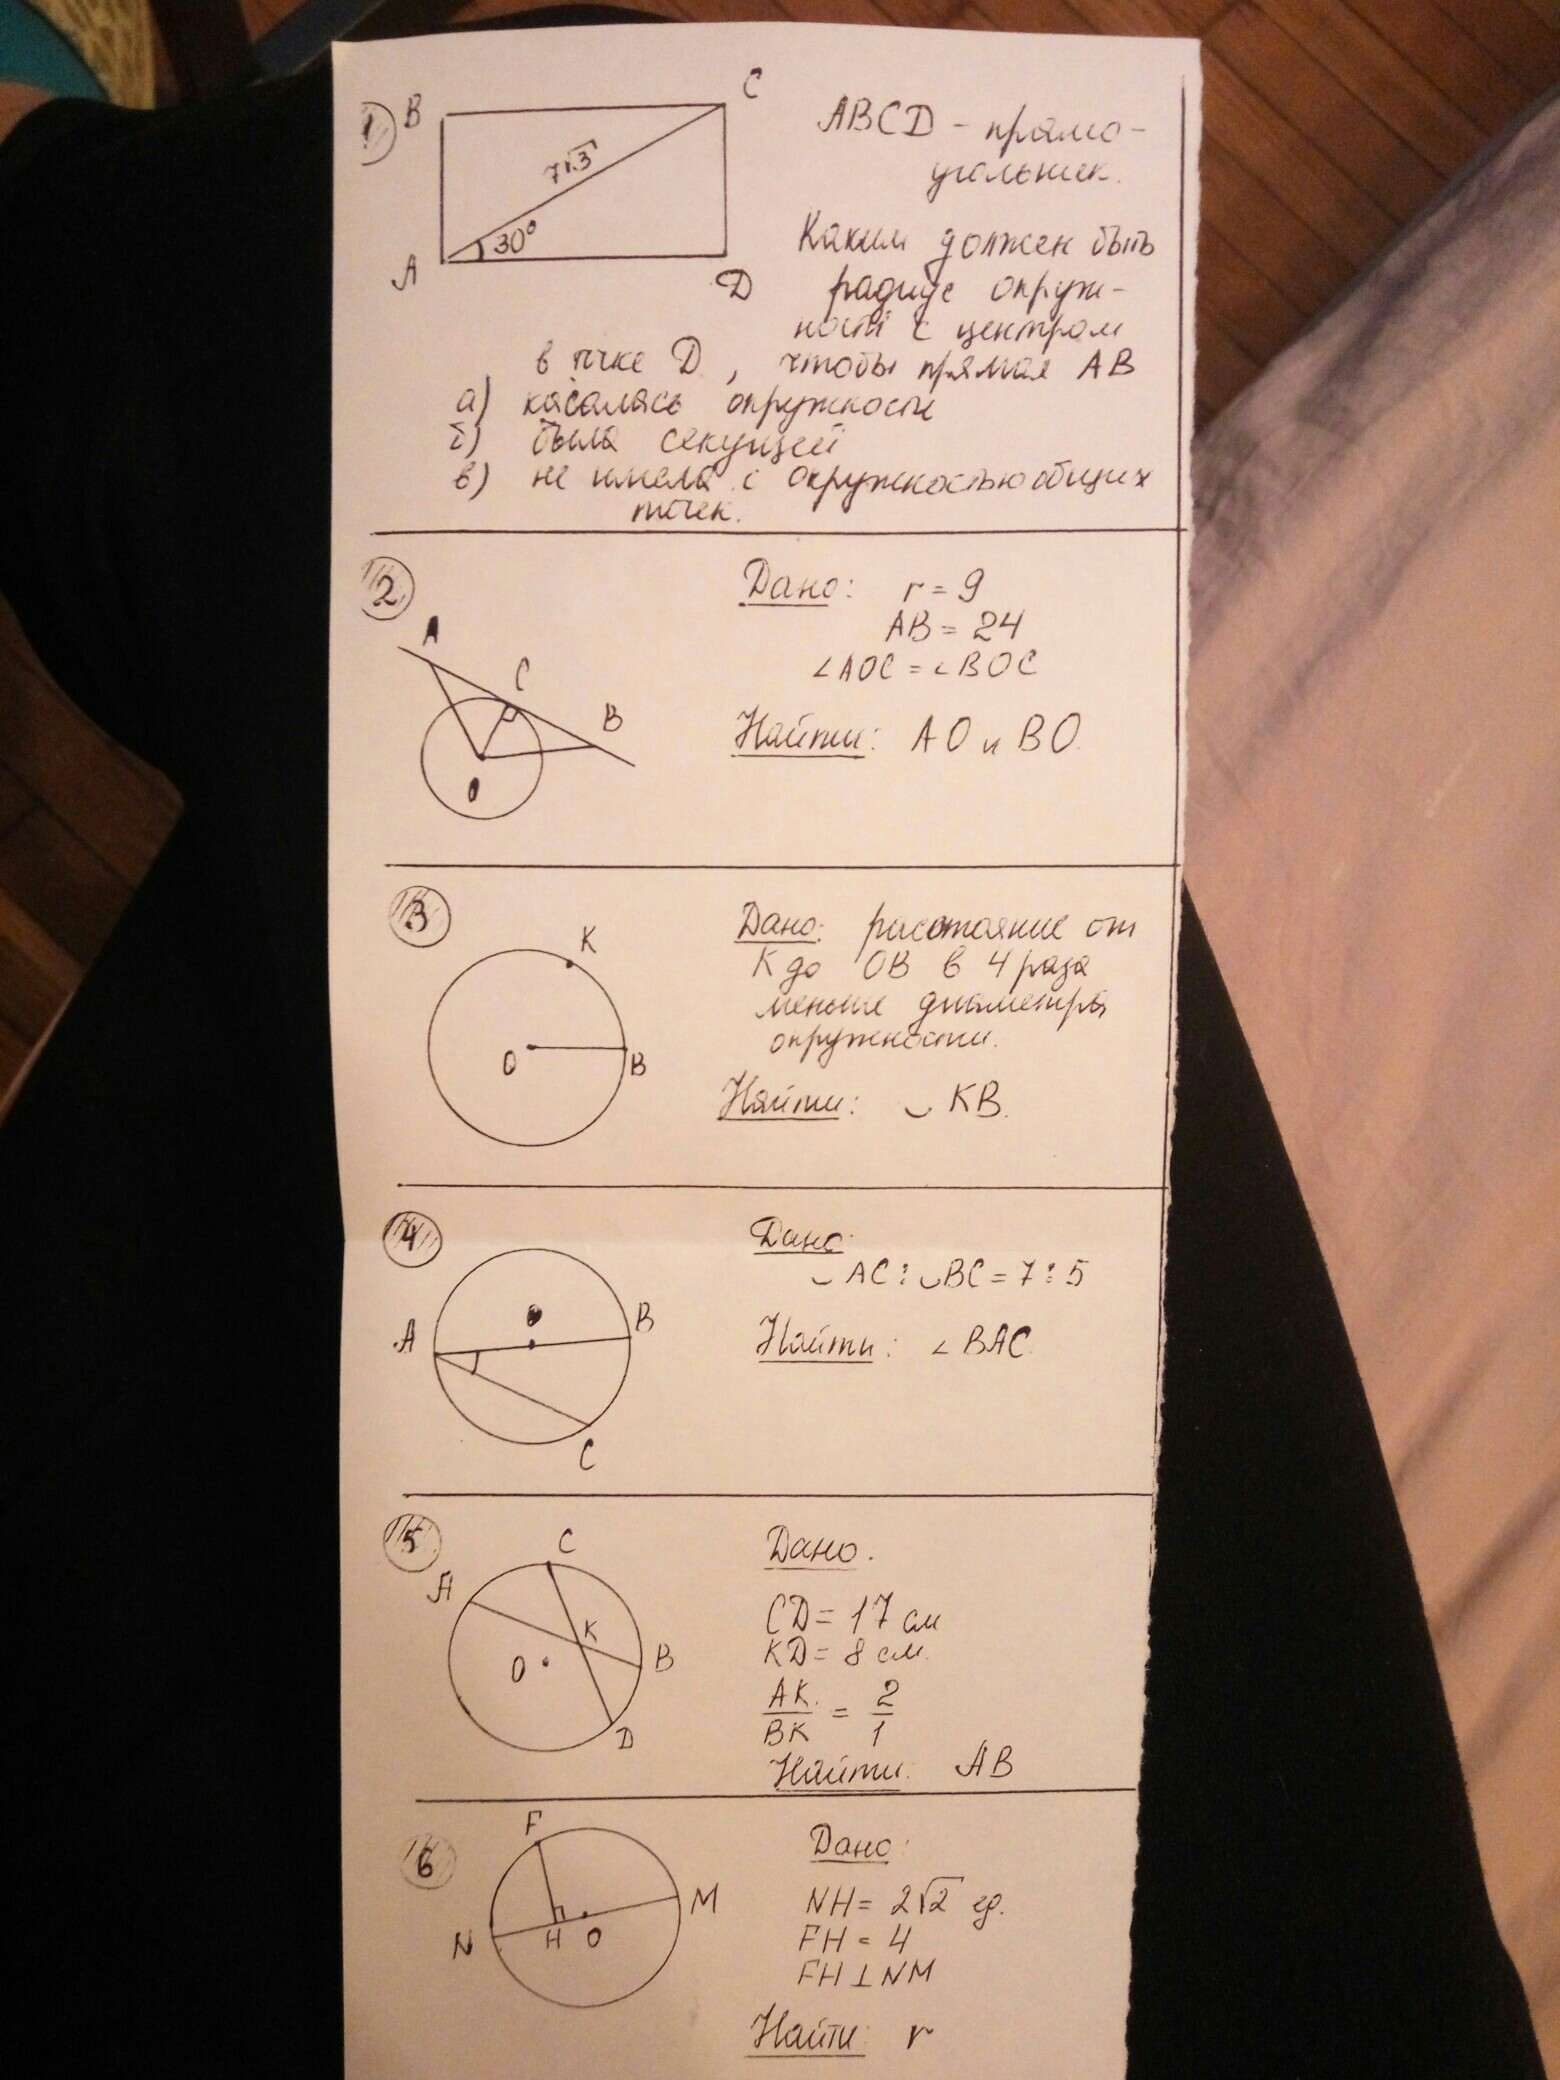 1)
B
C
7√3
30°
A
D
ABCD - прямо-
угольник.
Каким должен быть
радиус окруж-
ности с центром
в точке D, чтобы прямая AB
а) касалась окружности
б) была секущей
в) не имела с окружностью общих
точек.
2
A
C
B
O
Дано: r = 9
AB = 24
∠AOC = ∠BOC
Найти: AO и BO.
3
K
O
B
Дано: расстояние от
K до OB в 4 раза
меньше диаметра
окружности.
Найти: ◡ KB.
4
A
B
C
Дано:
◡ AC : ◡ BC = 7 : 5
Найти: ∠ BAC.
5
C
A
K
O
B
D
Дано.
CD = 17 см
KD = 8 см.
AK. / BK = 2 / 1
Найти: AB
6
F
M
N
H
O
Дано:
NH = 2√2 ед.
FH = 4
FH ⊥ NM
Найти: r